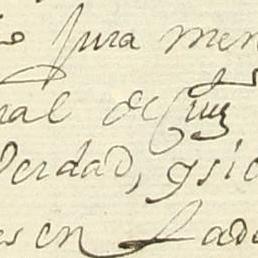 Jura men
de Cruz
Verdad, y sie
es en